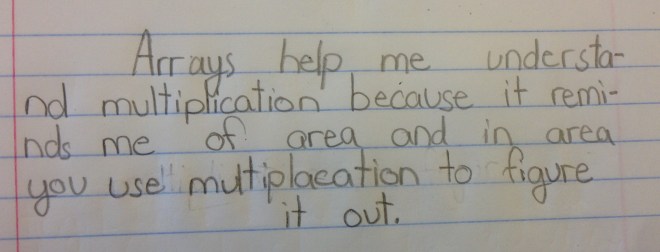 Arrays help me understa-
nd multiplication because it remi-
nds me of area and in area
you use multiplacation to figure
it out.